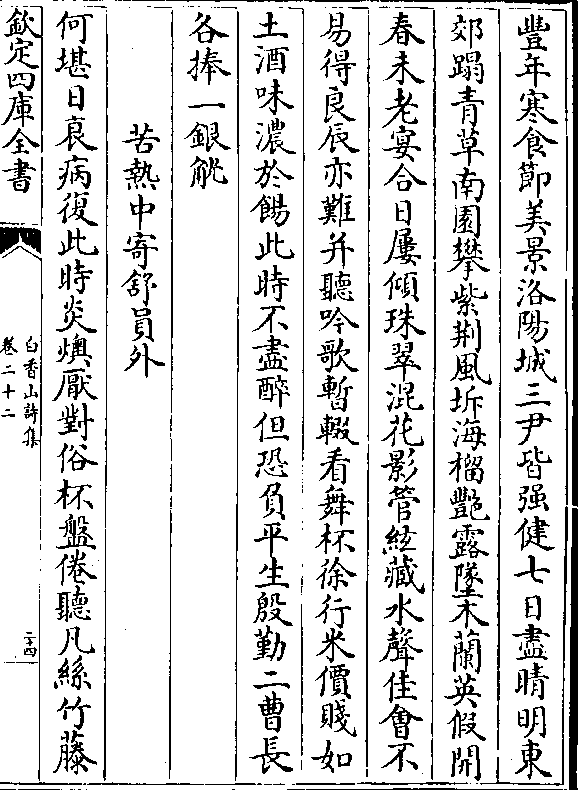 豐年寒食節美景洛陽城三尹皆强健七日盡晴明東
郊蹋青草南園攀紫荆風坼海榴艷露墜木蘭英假開
春未老宴合日屢傾珠翠混花影管絃藏水聲佳會不
易得良辰亦難并聽吟歌暫輟看舞杯徐行米價賤如
土酒味濃於餳此時不盡醉但恐負平生殷勤二曹長
各捧一銀觥
苦熱中寄舒員外
何堪日衰病復此時炎燠厭對俗杯盤倦聽凡絲竹藤
欽定四庫全書
白香山詩集
卷二十二
二十四